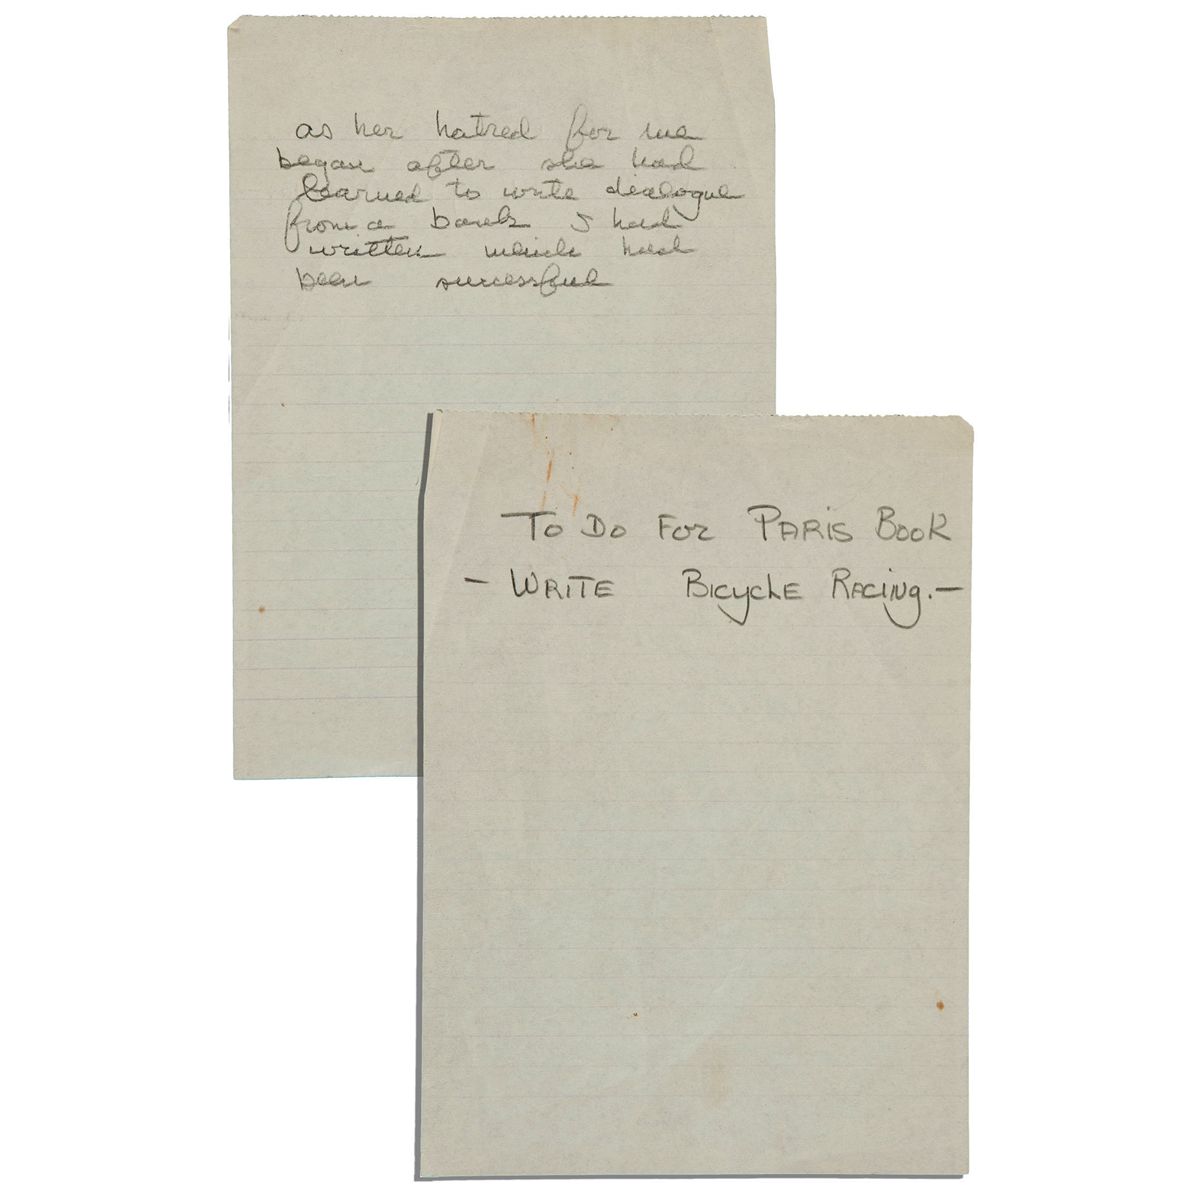 as her hatred for me
began after she had
learned to write dialogue
from a book I had
written which had
been successful
To Do For Paris Book
- Write Bicycle Racing.-